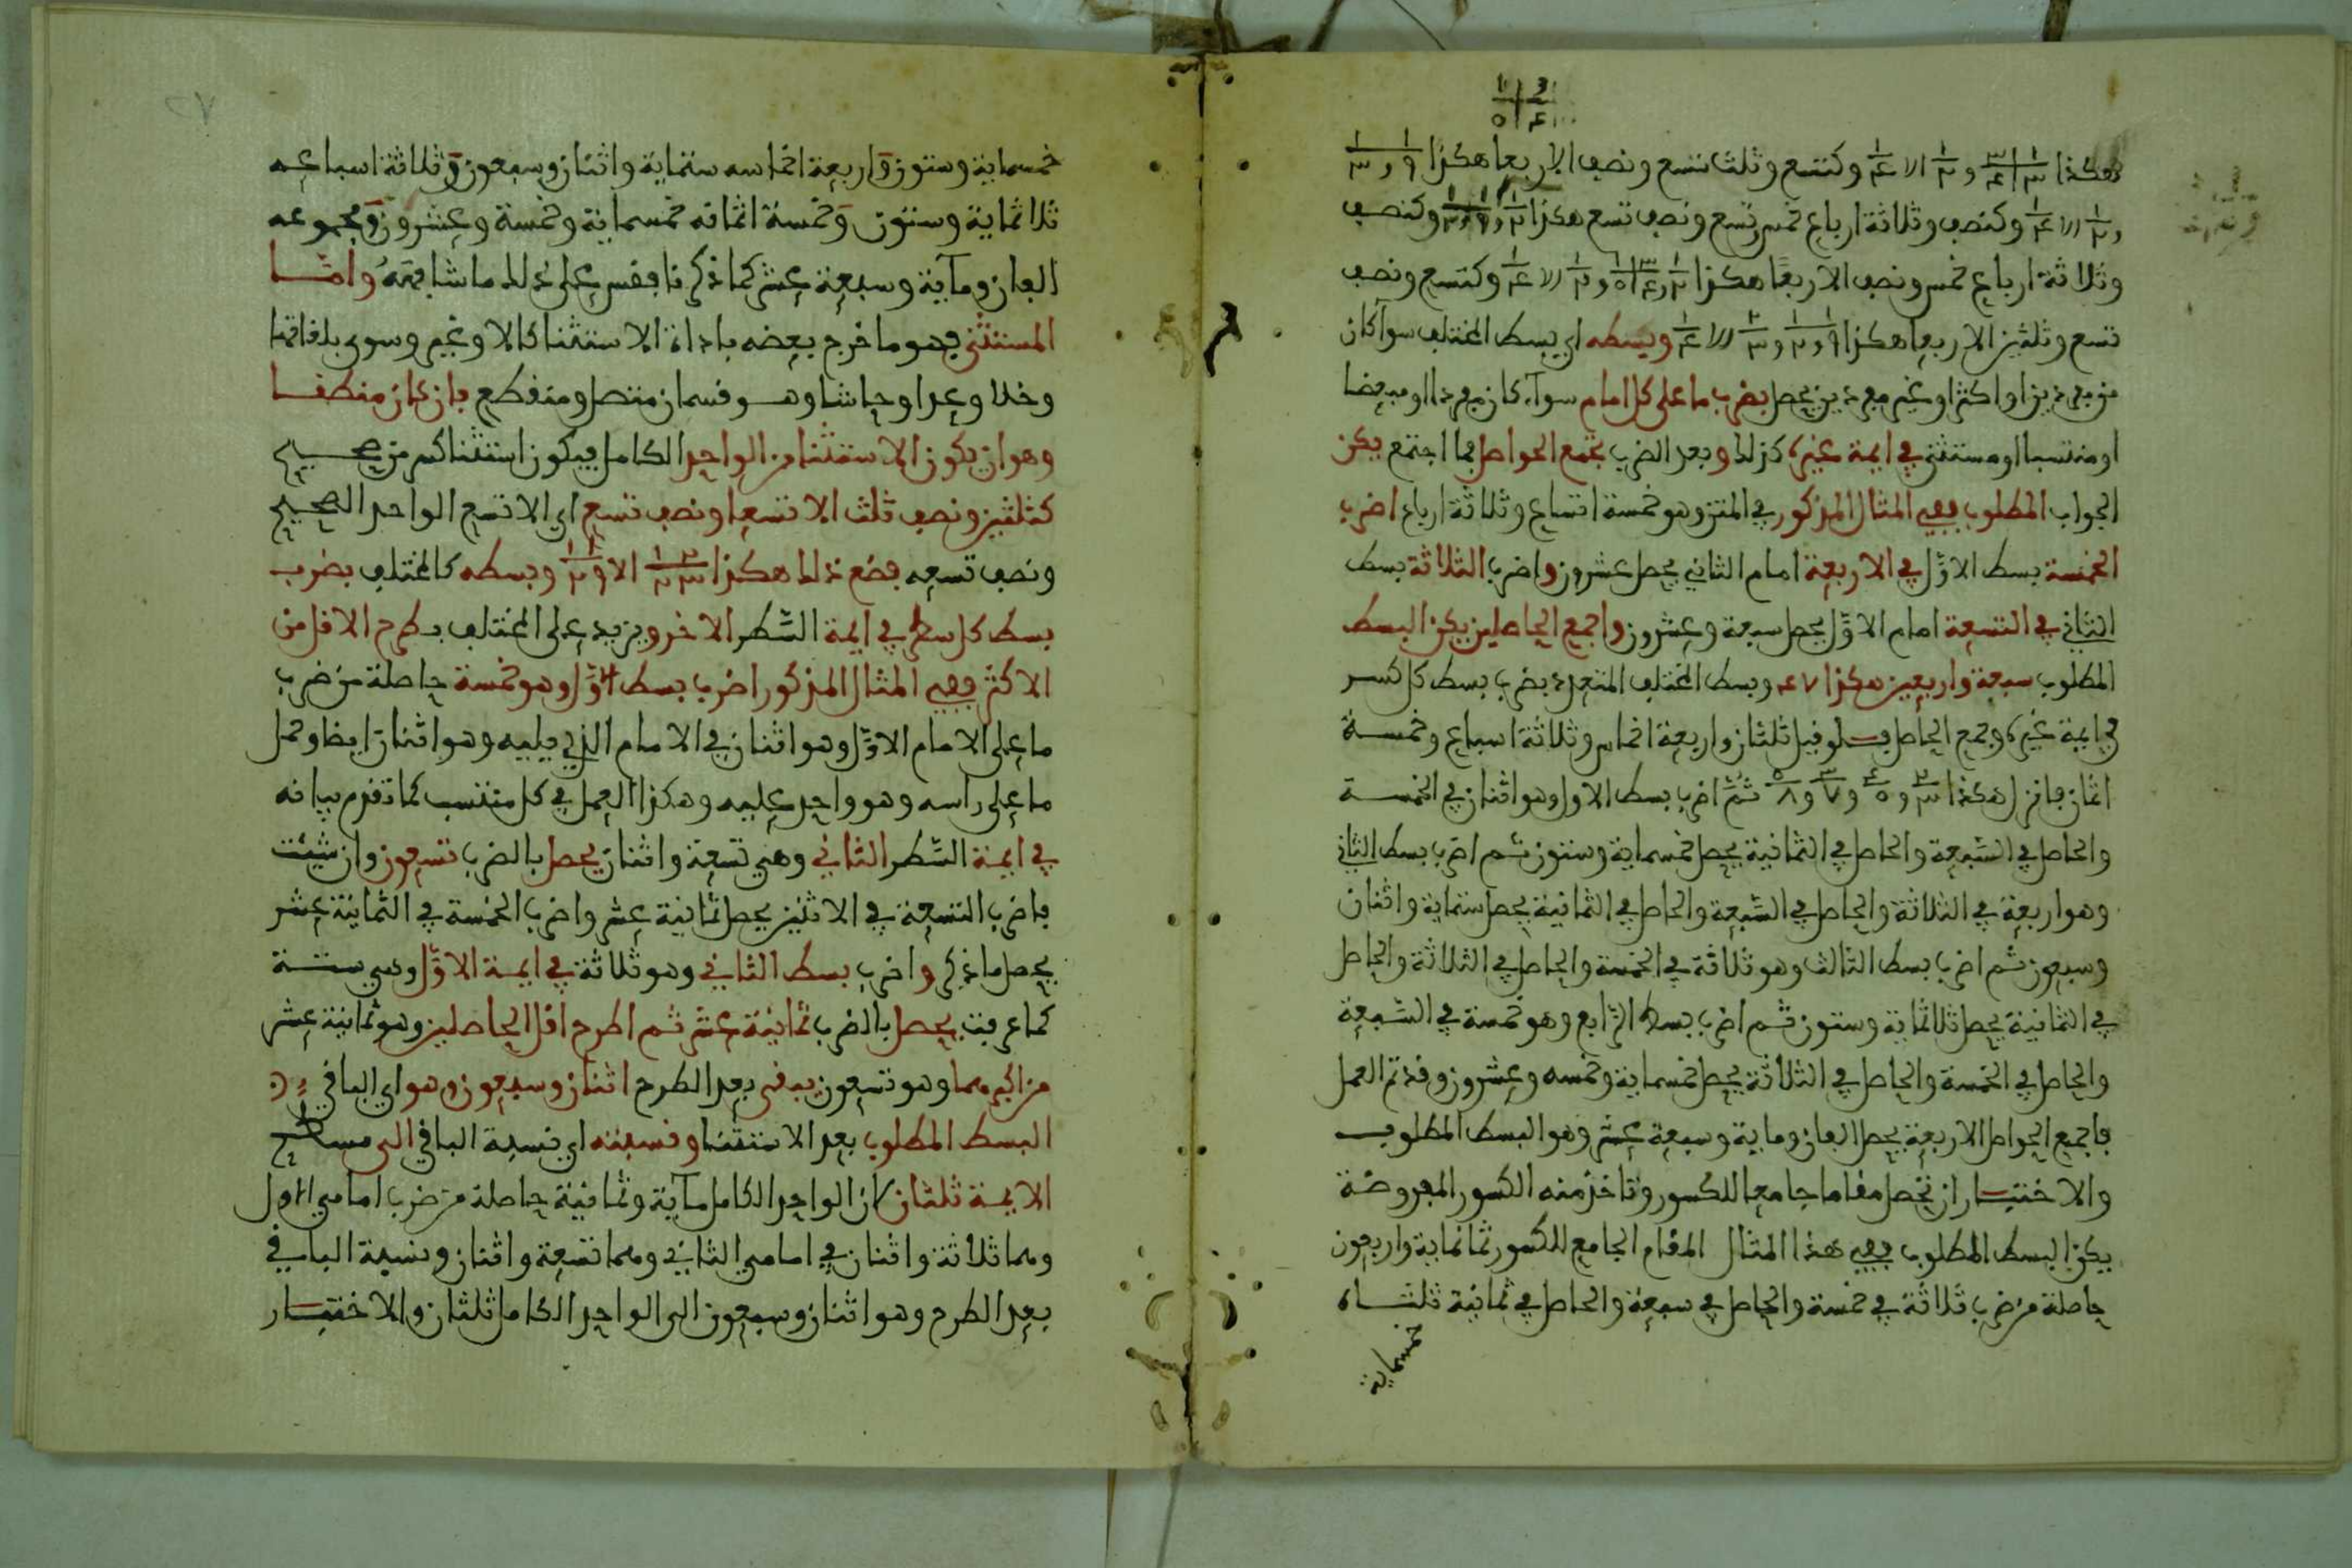 وثلاثة ارباع خمس ونصف الا ربعا هكذا
تسع وثلثين الا ربعا هكذا وبسطه اي بسط المختلف سوآ كان
من مفردين او اكثر او غير مفردين يحصل بضرب ما على كل امام سوآء كان مفردا او مبعضا
او منتسبا او مستثنى في ايمة غيره كذلك وبعد الضرب تجمع الحواصل فما اجتمع يكن
الجواب المطلوب ففي المثال المذكور في المتن وهو خمسة اتساع وثلاثة ارباع اضرب
الخمسة بسط الاوّل في الاربعة امام الثاني يحصل عشرون واضرب الثلاثة بسط
الثاني في التسعة امام الاوّل يحصل سبعة وعشرون واجمع الحاصلين يكن البسط
المطلوب سبعة واربعين هكذا ٤٧ وبسط المختلف المتعدد بضرب بسط كل كسر
في ايمة غيره وجمع الحاصل فلو قيل ثلثان واربعة اخماس وثلاثة اسباع وخمسة
اثمان فانزل هكذا ٢/٣ و ٤/٥ و ٣/٧ و ٥/٨ ثمّ اضرب بسط الاول وهو اثنان في الخمسة
والحاصل في السّبعة والحاصل في الثمانية يحصل خمسماية وستون ثم اضرب بسط الثاني
وهو اربعة في الثلاثة والحاصل في السّبعة والحاصل في الثمانية يحصل ستماية واثنان
وسبعون ثم اضرب بسط الثالث وهو ثلاثة في الخمسة والحاصل في الثلاثة والحاصل
في الثمانية يحصل ثلاثماية وستون ثم اضرب بسط الرّابع وهو خمسة في السّبعة
والحاصل في الخمسة والحاصل في الثلاثة يحصل خمسماية وخمسه وعشرون وقد تم العمل
فاجمع الحواصل الاربعة يحصل الفان وماية وسبعة عشر وهو البسط المطلوب
والاختيار ان تحصل مقاما جامعا للكسور وتاخذ منه الكسور المفروضة
يكن البسط المطلوب ففي هذا المثال المقام الجامع للكسور ثمانماية واربعون
حاصلة من ضرب ثلاثة في خمسة والحاصل في سبعة والحاصل في ثمانية ثلثاه
خمسماية
خمسماية وستون وَاربعة اخماسه ستماية واثنان وسبعون وَثلاثة اسباعه
ثلاثماية وستون وَخمسة اثمانه خمسماية وخمسة وعشرون وَمجموعه
الفان ومآية وسبعة عشر كما ذكرنا فقس على ذلك ما شابهه وامّا
المستثنى فهو ما خرج بعضه باداة الاستثنا كالا وغير وسوى بلغاتها
وخلا وعدا وحاشا وهو قسمان متصل ومنقطع فان كان منقطعا
وهو ان يكون الاستثنا من الواحد الكامل فيكون استثنا كسر من صحيح
كثلثين ونصف ثلث الا تسعا ونصف تسع اي الا تسع الواحد الصحيح
ونصف تسعه فضع ذلك هكذا وبسطه كالمختلف بضرب
بسط كل سطر في ايمة السّطر الاخر ويزيد على المختلف بطرح الاقل من
الاكثر ففي المثال المذكور اضرب بسط الاوّل وهو خمسة حاصلة من ضرب
ما على الامام الاوّل وهو اثنان في الامام الذي يليه وهو اثنان ايضا وحمل
ما على راسه وهو واحد عليه وهكذا العمل في كل منتسب كما تقدم بيانه
في ايمة السّطر الثاني وهي تسعة واثنان يحصل بالضرب تسعون وان شيئت
فاضرب التسعة في الاثنين يحصل ثمانية عشر واضرب الخمسة في الثمانية عشر
يحصل ما ذكر واضرب بسط الثاني وهو ثلاثة في ايمة الاوّل وهي ستة
كما عرفت يحصل بالضرب ثمانية عشر ثم اطرح اقل الحاصلين وهو ثمانية عشر
من اكبرهما وهو تسعون يبقى بعد الطرح اثنان وسبعون وهو اي الباقي
البسط المطلوب بعد الاستثنا ونسبته اي نسبة الباقي الى مسطح
الايمة ثلثان لان الواحد الكامل مآية وثمانية حاصلة من ضرب امامي الاول
وهما ثلاثة واثنان في امامي الثاني وهما تسعة واثنان ونسبة الباقي
بعد الطرح وهو اثنان وسبعون الى الواحد الكامل ثلثان والاختيار